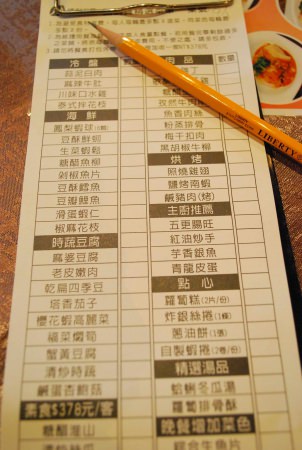 冷盤
蒜泥白肉
麻辣牛肚
川味口水雞
泰式拌花枝
海鮮
鳳梨蝦球
豆酥鮮蚵
生菜蝦鬆
糖醋魚柳
剁椒魚片
豆酥鱈魚
豆瓣鯉魚
滑蛋蝦仁
椒麻花枝
時蔬豆腐
麻婆豆腐
老皮嫩肉
乾扁四季豆
塔香茄子
櫻花蝦高麗菜
福菜燜筍
蟹黃豆腐
清炒時蔬
鹹蛋杏鮑菇
素食$378元/客
糖醋淮山
肉品
數量
孜然牛肉
魚香肉絲
粉蒸排骨
梅干扣肉
黑胡椒牛柳
烘烤
照燒雞翅
鹽烤南蝦
鹹豬肉(烤)
主廚推薦
五更腸旺
紅油炒手
芋香銀魚
青龍皮蛋
點心
蘿蔔糕(2片/份)
炸銀絲捲(1條)
蔥油餅(1張)
自製蝦捲(2卷/份)
精選湯品
蛤蜊冬瓜湯
蘿蔔排骨酥
晚餐增加菜色
綜合生魚片
LIBERTY